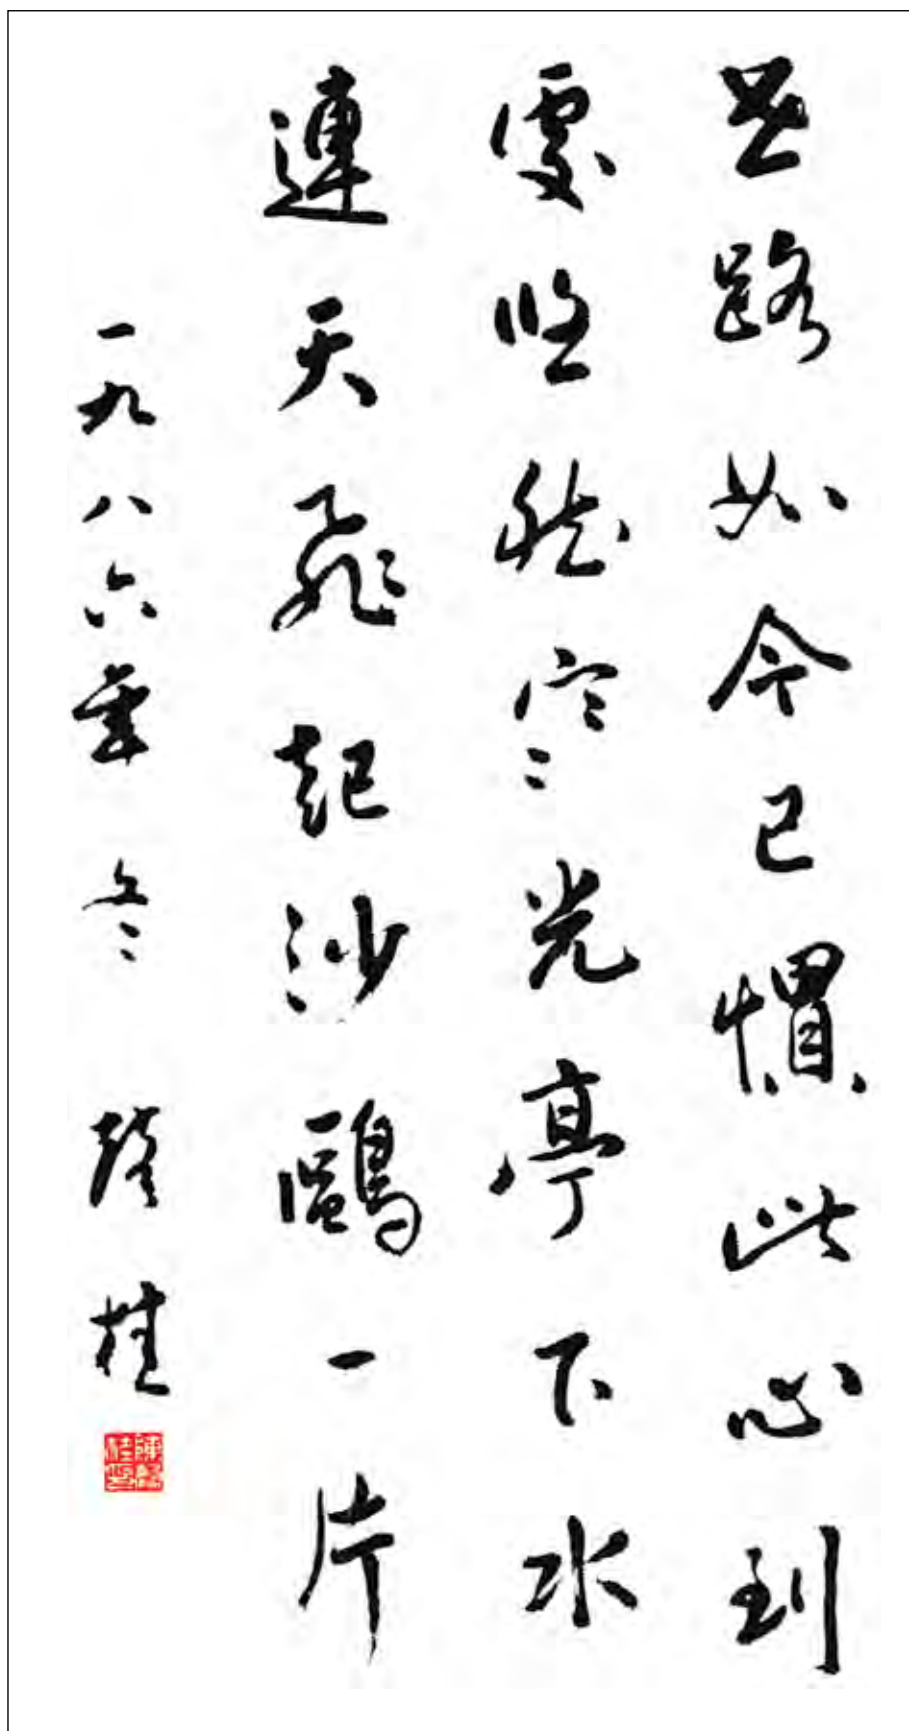 世路如今已慣此心到
處悠然寒光亭下水
連天飛起沙鷗一片
一九八六年冬 桂